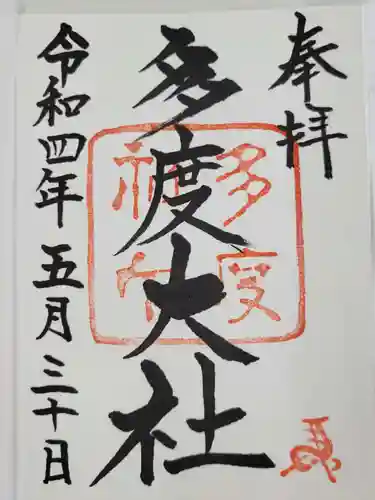 奉拝
多度大社
令和四年五月三十日
多度
神社